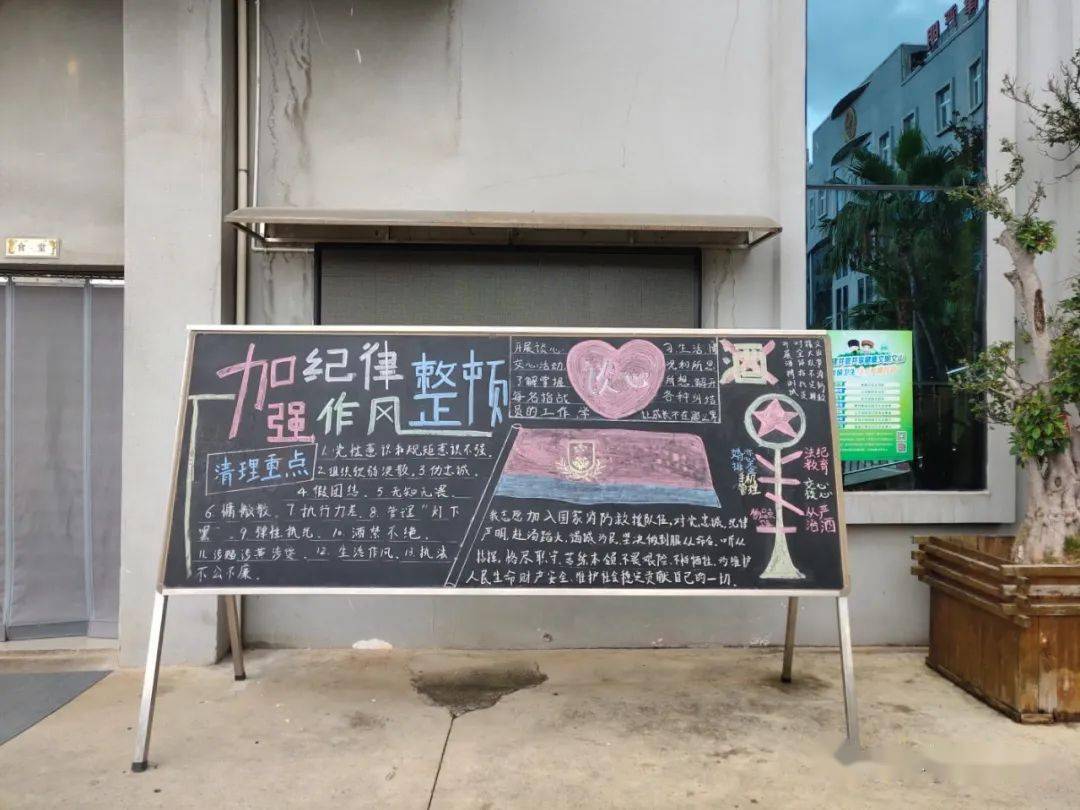 食 堂
加强纪律作风整顿
清理重点
1.党性意识和规矩意识不强、
2.组织软弱涣散、3.伪忠诚、
4.假团结、5.无知无畏、
6.慵懒散、7.执行力差、8.管理“灯下
黑”、9.弹性执纪、10.酒禁不绝、
11.涉赌涉黄涉贷、12.生活作风、13.执法
不公不廉。
开展谈心
交心活动
了解掌握
每名指战
员的工作、学
谈心
习生活情
况和所思
所想，解开
各种纠结
我志愿加入国家消防救援队伍，对党忠诚，纪律
严明，赴汤蹈火，竭诚为民，坚决做到服从命令、听从
指挥，恪尽职守、苦练本领，不畏艰险、不怕牺牲，为维护
人民生命财产安全、维护社会稳定贡献自己的一切。
酒
法纪
教育
交心
谈心
从严
治酒
手机
管理